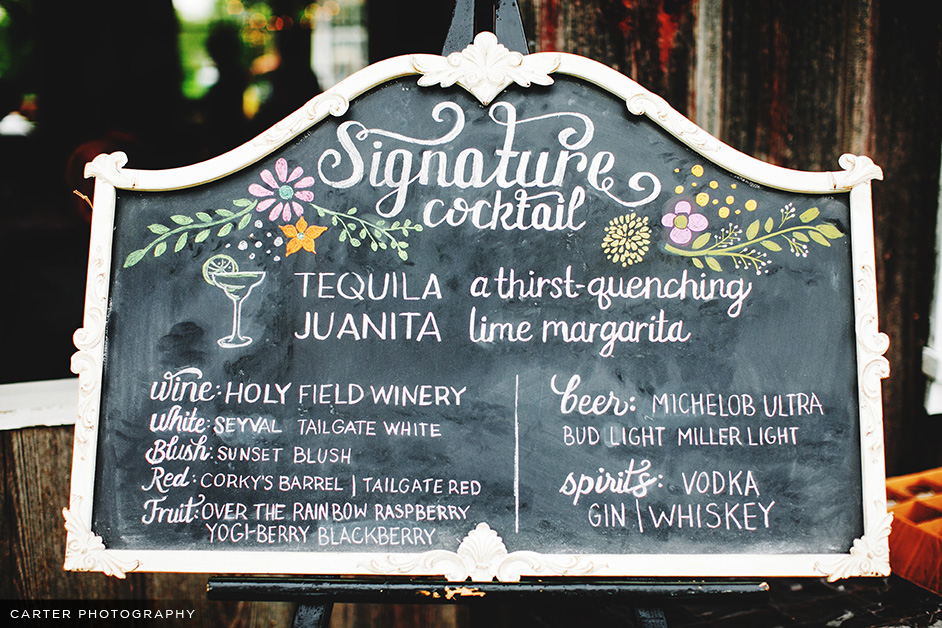 Signature
cocktail
TEQUILA a thirst-quenching
JUANITA lime margarita
wine: HOLY FIELD WINERY
White: SEYVAL TAILGATE WHITE
Blush: SUNSET BLUSH
Red: CORKY'S BARREL | TAILGATE RED
Fruit: OVER THE RAINBOW RASPBERRY
YOGI-BERRY BLACKBERRY
beer: MICHELOB ULTRA
BUD LIGHT MILLER LIGHT
spirits: VODKA
GIN | WHISKEY
CARTER PHOTOGRAPHY